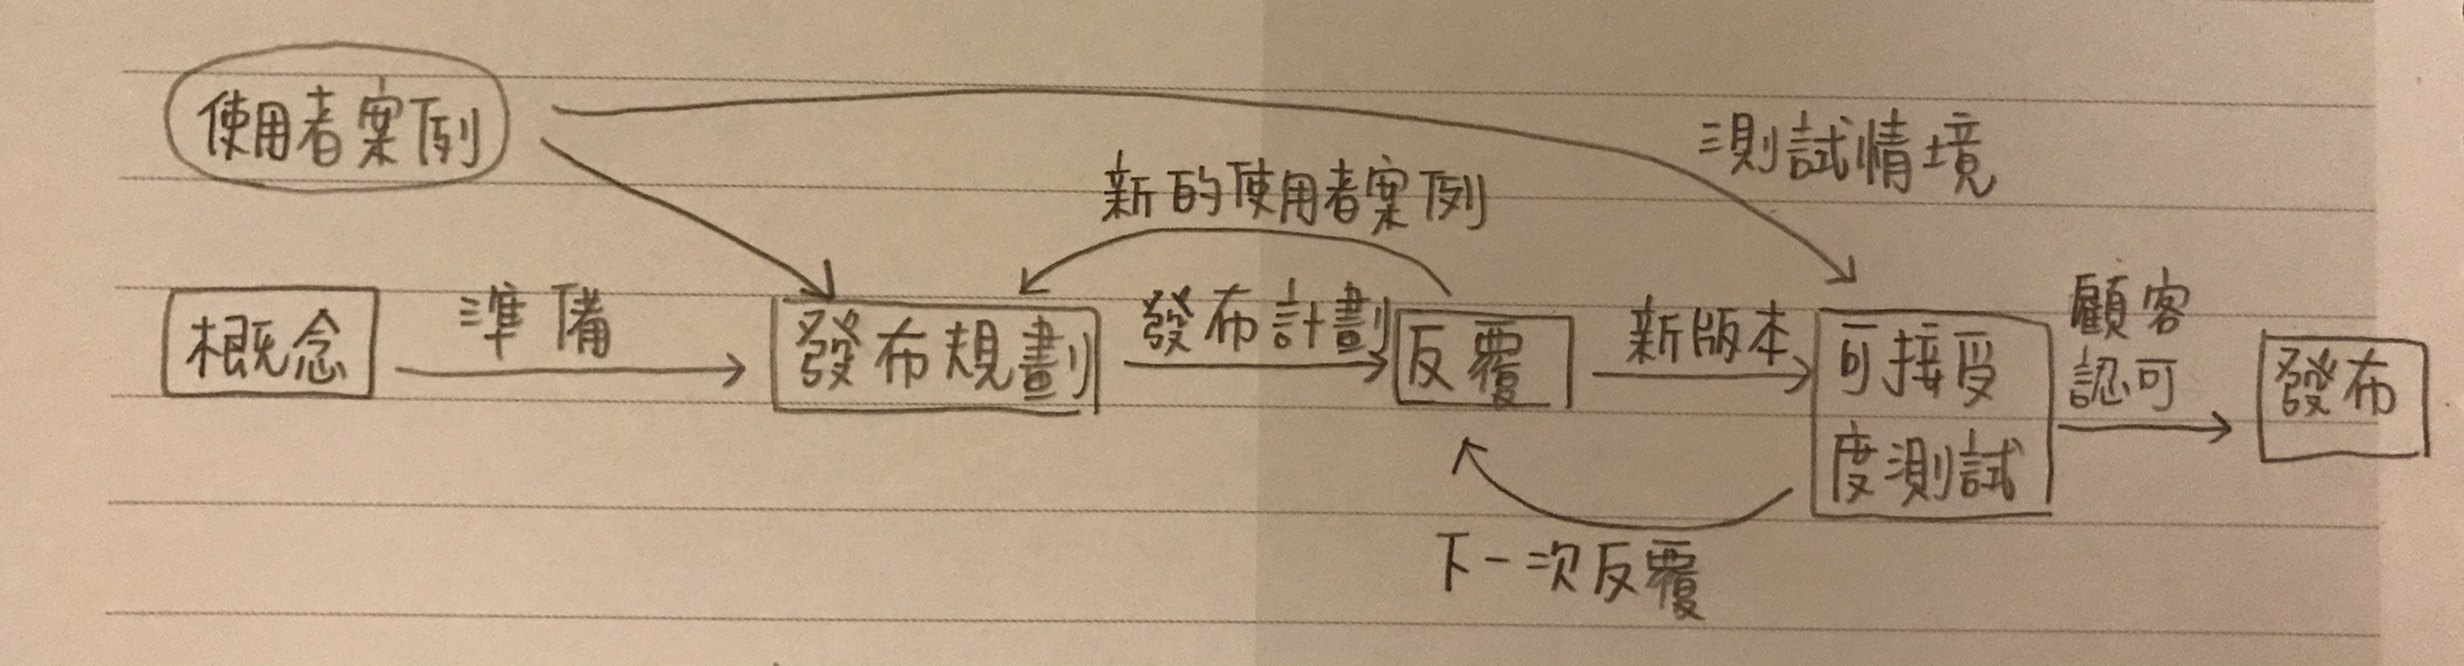 使用者案例
測試情境
新的使用者案例
概念
準備
發布規劃
發布計劃
反覆
新版本
可接受
度測試
顧客
認可
發布
下一次反覆